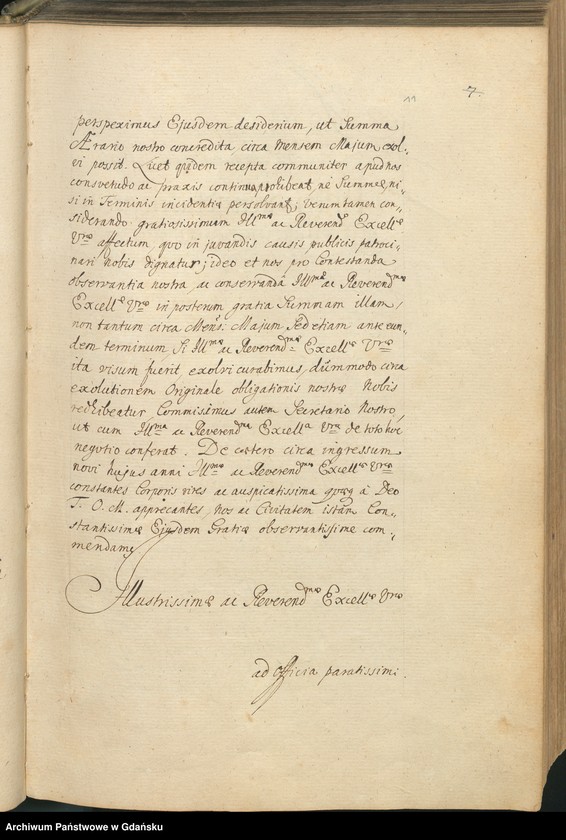 11
7.
perspeximus Ejusdem desiderium, ut Summa
Ærario nostro concredita circa mensem Majum exol-
vi possit. Licet quidem recepta communiter apud nos
consvetudo ac praxis continua prohibeat, ne Summæ, ni-
si in Terminis incidentia persolvant; verum tamen con-
siderando gratiosissimum Illmæ ac Reverendmæ Excellæ
Vræ affectum, quo in juvandis causis publicis patroci-
nari nobis dignatur; ideo et nos pro contestanda
observantia nostra, ac conservanda Illmæ ac Reverendmæ
Excellæ Vræ in posterum gratia Summam illam,
non tantum circa Mens. Majum, Sed etiam ante eun-
dem terminum, Si Illmæ ac Reverendmæ Excellæ Vræ
ita visum fuerit, exolvi curabimus, dummodo circa
exolutionem Originale obligationis nostræ Nobis
redhibeatur. Commisimus autem Secretario Nostro,
ut cum Illma ac Reverendma Excella Vra de toto hoc
negotio conferat. De cætero circa ingressum
novi hujus anni Illmæ ac Reverendmæ Excellæ Vræ
constantes Corporis vires ac auspicatissima quæq à Deo
T. O. M. apprecantes, nos ac Civitatem istam Con-
stantissimæ Ejusdem Gratiæ observantissime com-
mendamq
Illustrissimæ ac Reverendmæ Excellæ Vræ
ad officia paratissimi.
Archiwum Państwowe w Gdańsku